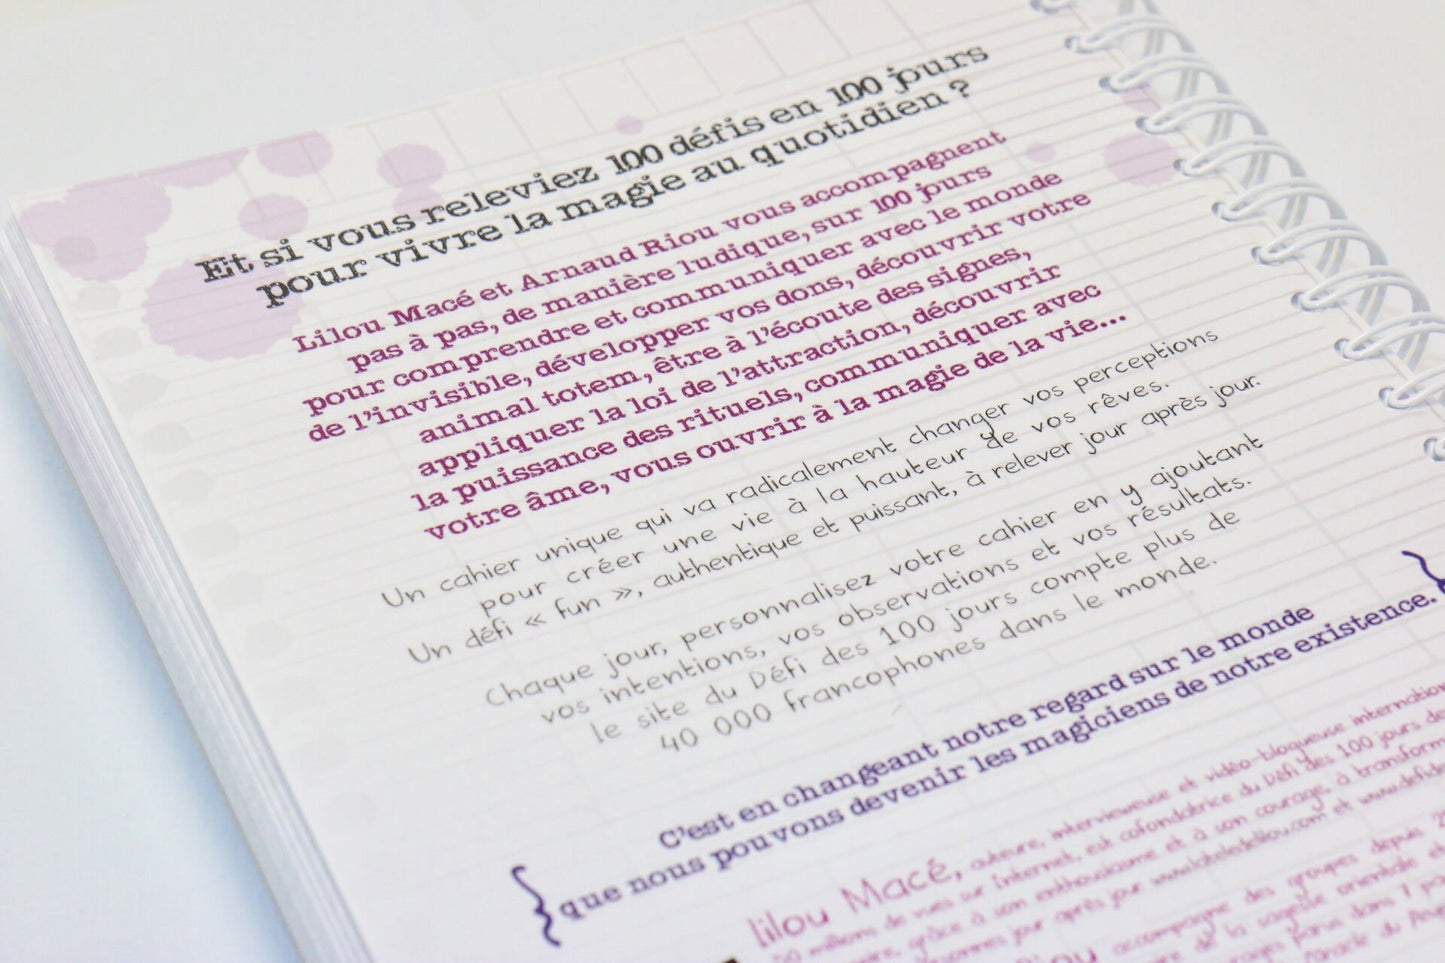 Et si vous releviez 100 défis en 100 jours
pour vivre la magie au quotidien ?
Lilou Macé et Arnaud Riou vous accompagnent
pas à pas, de manière ludique, sur 100 jours
pour comprendre et communiquer avec le monde
de l'invisible, développer vos dons, découvrir votre
animal totem, être à l'écoute des signes,
appliquer la loi de l'attraction, découvrir
la puissance des rituels, communiquer avec
votre âme, vous ouvrir à la magie de la vie...
Un cahier unique qui va radicalement changer vos perceptions
pour créer une vie à la hauteur de vos rêves.
Un défi « fun », authentique et puissant, à relever jour après jour.
Chaque jour, personnalisez votre cahier en y ajoutant
vos intentions, vos observations et vos résultats.
le site du Défi des 100 jours compte plus de
40 000 francophones dans le monde.
C'est en changeant notre regard sur le monde
que nous pouvons devenir les magiciens de notre existence.
lilou Macé, auteure, intervieweuse et vidéo-blogueuse
50 millions de vues sur Internet, est cofondatrice du Défi des 100 jours
grâce à son enthousiasme et à son courage, à
jour après jour www.lateledelilou.com et
accompagne des groupes depuis
de la sagesse orientale et
parus dans 7
Oracle du